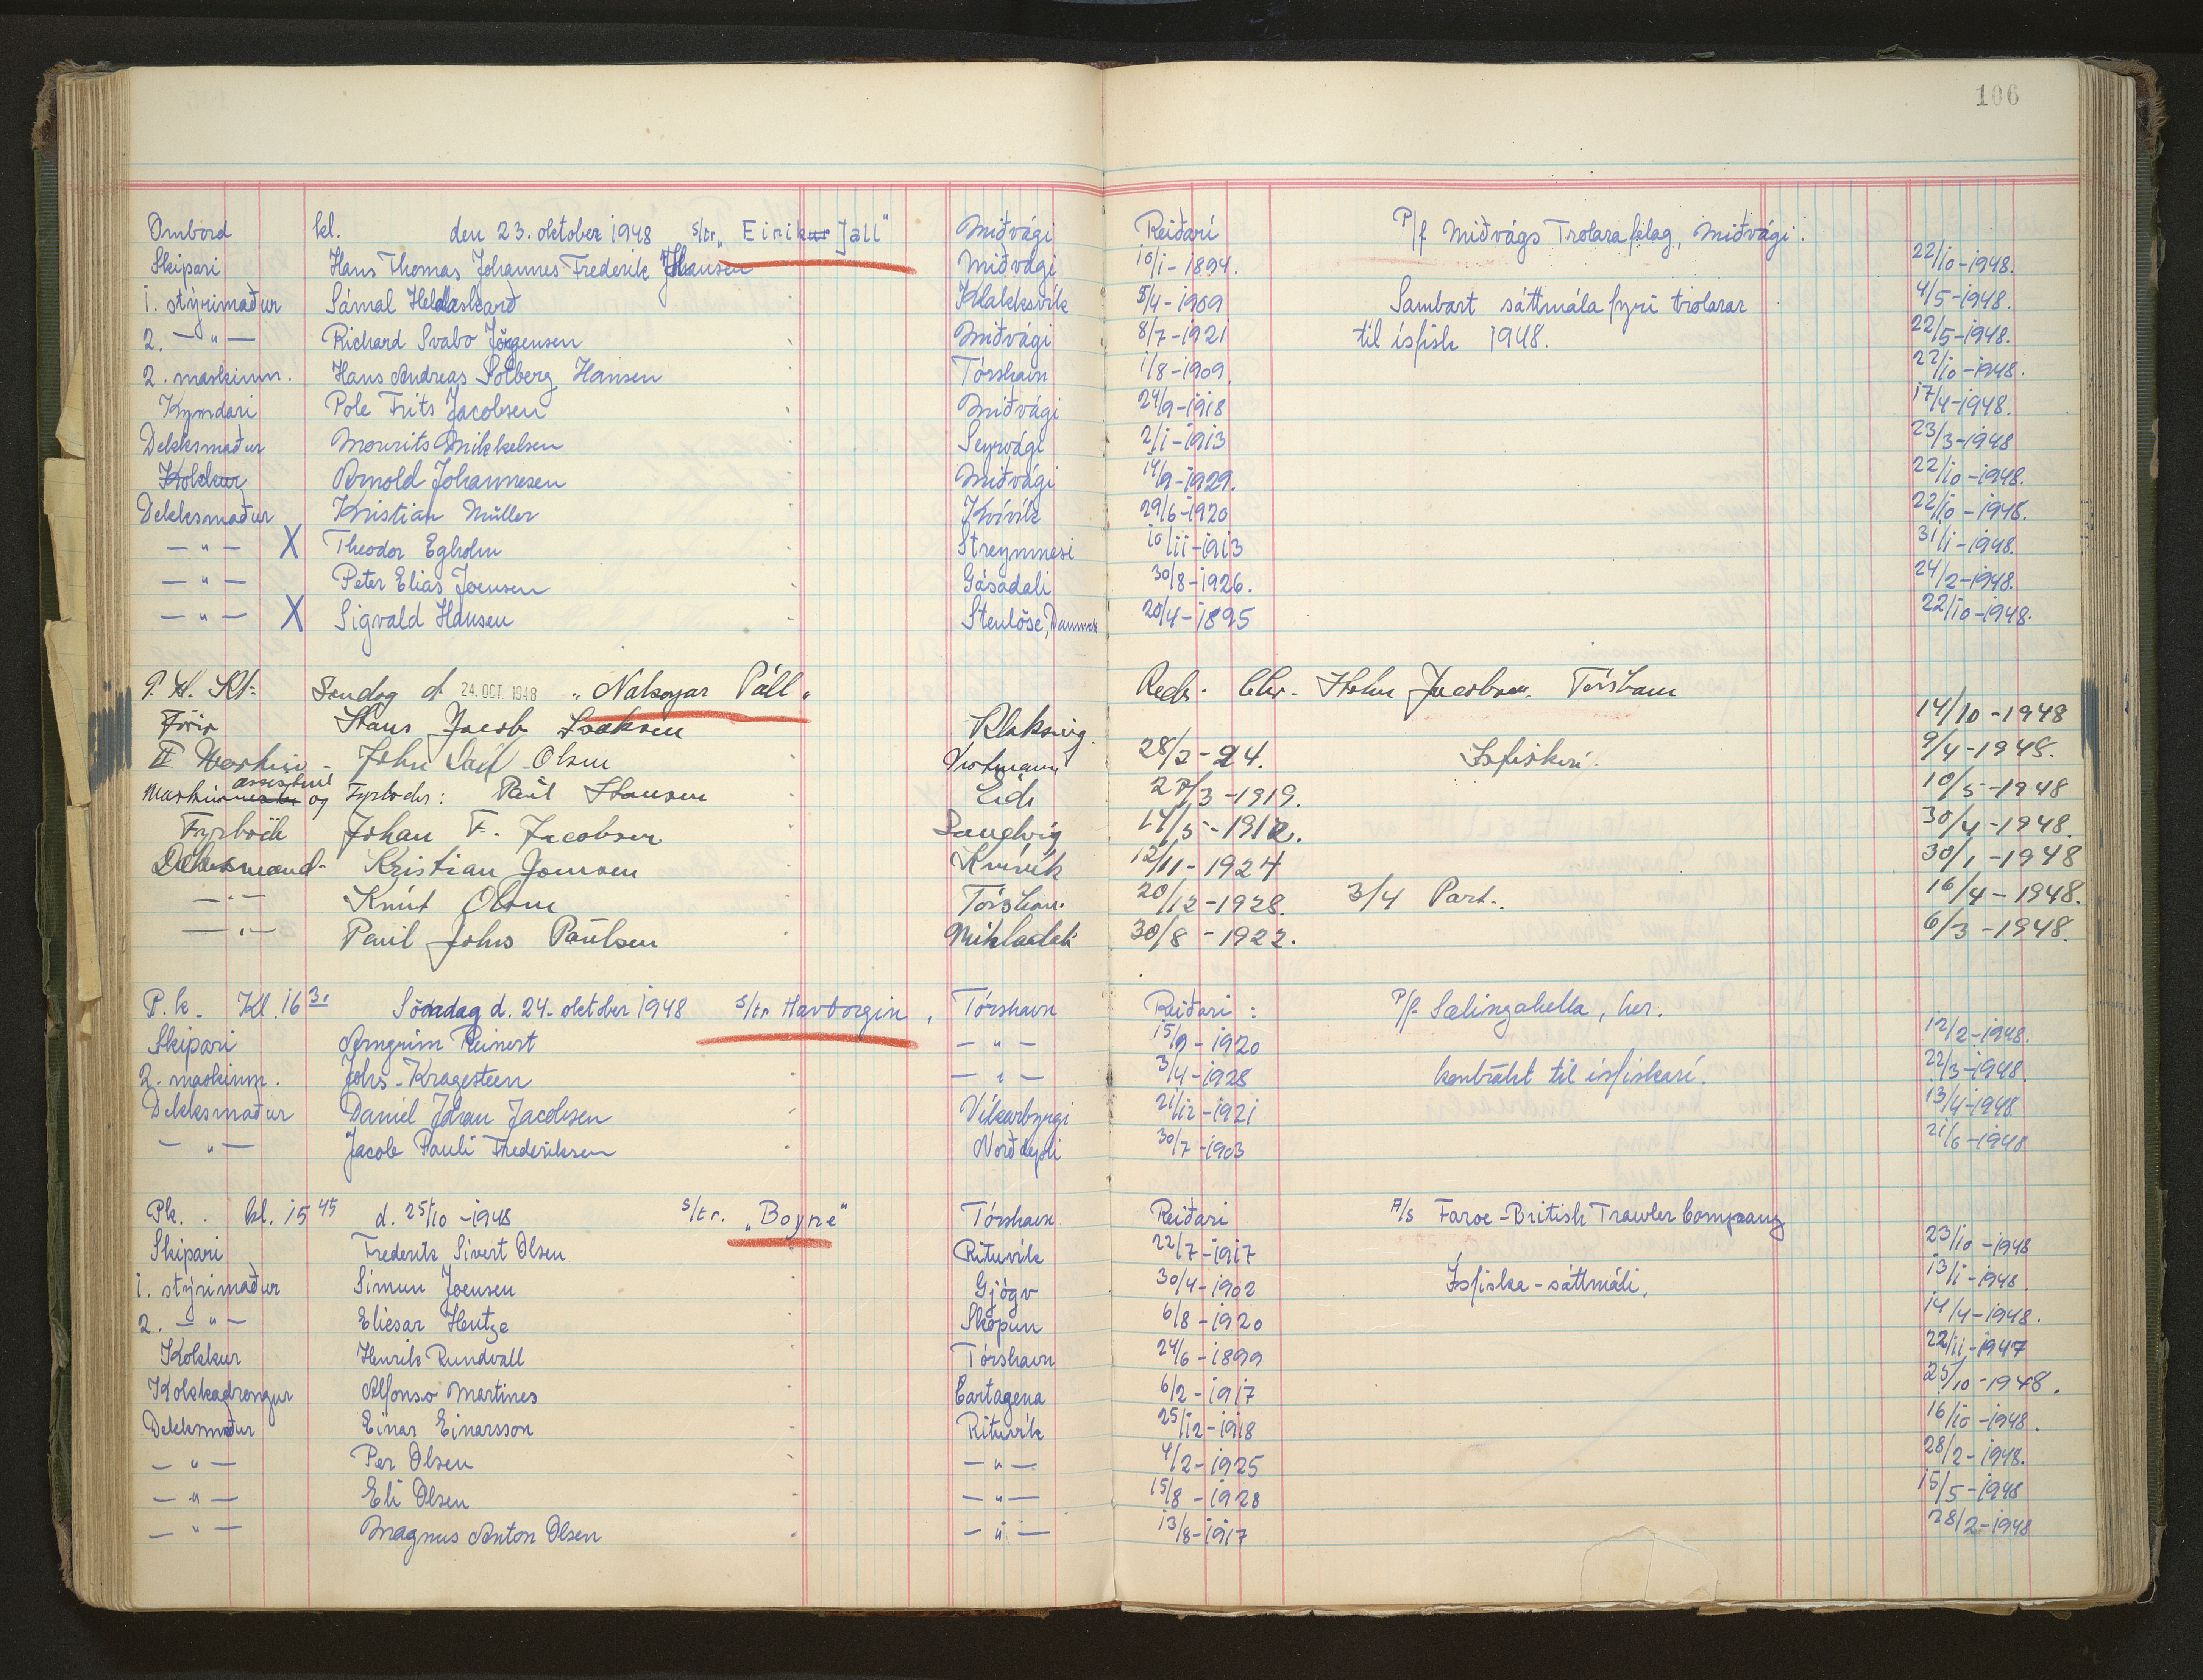 106
Ombord kl. den 23. oktober 1948 s/tr. „Eirikur Jall" Miðvági Reiðari P/f Miðvágs Trolarafelag, Miðvági.
Skipari Hans Thomas Johannes Frederik Hansen Miðvági 10/1-1894. 22/10-1948.
1. stýrimaður Sámal Heldarskarð Klakksvík 5/4-1909 Sambært sáttmála fyri trolarar 4/5-1948.
2. - " - Richard Svabo Jörgensen Miðvági 8/7-1921 til ísfisk 1948. 22/5-1948.
2. maskinm. Hans Andreas Solberg Hansen Tórshavn 1/8-1909. 22/10-1948.
Kyndari Pole Frits Jacobsen Miðvági 24/9-1918 17/4-1948.
Dekksmaður Mourits Mikkelsen Seyrvági 2/1-1913 23/3-1948
Kokkur Arnold Johannesen Miðvági 14/9-1929. 22/10-1948.
Dekksmaður Kristian Müller Kvívík 29/6-1920 22/10-1948.
- " - X Theodor Egholm Streymnesi 10/11-1913 31/1-1948.
- " - Peter Elias Joensen Gásadali 30/8-1926. 24/2-1948.
- " - X Sigvald Hansen Stenlöse, Danmark 20/4-1895 22/10-1948.
P. K. Kl. Søndag d 24. OCT. 1948 „Nalsoyar Páll" Redr. Chr. Holm Jacobsen. Tórshavn
Förir Hans Jacob Isaksen Klaksvig. 14/10-1948
II Maskin- John Olsen Vestmann 28/2-24. Isfiskeri. 9/4-1948.
Maskin assistent og Fyrbøder: Paul Hansen Eide 27/3-1919. 10/5-1948
Fyrböd Johan F. Jacobsen Sandvig 14/5-1912. 30/4-1948.
Dæksmand- Kristian Joensen Kvivik 12/11-1924 30/1-1948
- " - Knút Olsen Tórshavn 20/12-1928. 3/4 Part. 16/4-1948.
- " - Paul Johs Paulsen Mikladali 30/8-1922. 6/3-1948.
P.k. Kl. 16 30 Söndag d. 24. oktober 1948 s/tr Havborgin, Tórshavn Reiðari: P/f Sælingahella, her.
Skipari Arngrim Reinert - " - 15/9-1920 12/2-1948.
2. maskinm. Johs. Kragesteen - " - 3/4-1928 kontrakt til ísfiskarí. 22/3-1948.
Dekksmaður Daniel Johan Jacobsen Víkarbyrgi 21/12-1921 13/4-1948
- " - Jacob Pauli Frederiksen Norðdepli 30/7-1903 21/6-1948
Pk. kl. 15 45 d. 25/10-1948 s/tr. „Boyne" Tórshavn Reiðari A/S Faroe-British Trawler Company
Skipari Frederik Sivert Olsen Rituvík 22/7-1917 23/10-1948
1. stýrimaður Simun Joensen Gjógv 30/4-1902 Ísfiska-sáttmáli. 13/1-1948.
2. - " - Eliesar Hentze Skopun 6/8-1920 14/4-1948.
Kokkur Henrik Rundvall Tórshavn 24/6-1899 22/11-1947
Kokkadrongur Alfonso Martines Cartagena 6/2-1917 25/10-1948.
Dekksmaður Einar Einarsson Rituvík 25/12-1918 16/10-1948.
- " - Per Olsen - " - 4/2-1925 28/2-1948.
- " - Eli Olsen - " - 15/8-1928 15/5-1948
- " - Magnus Anton Olsen - " - 13/8-1917 28/2-1948